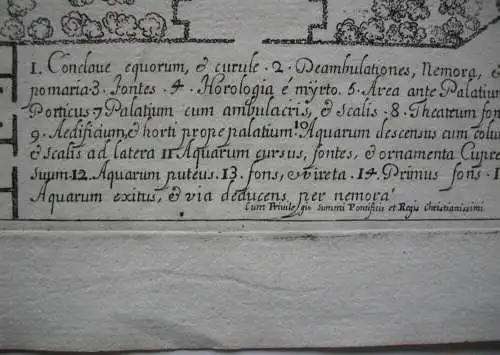 1. Conclave equorum, & curule · 2 · Deambulationes, Nemora, &
pomaria·3· Fontes · 4 · Horologia é myrto. 5· Area ante Palatium
Porticus 7 Palatium cum ambulacris, & scalis · 8 · Theatrum fon
9 · Aedificium, & horti prope palatium·10 Aquarum descensus cum colu
& scalis ad latera 11 Aquarum cursus, fontes, & ornamenta Cupre
suum·12. Aquarum puteus. 13. fons, & vireta · 14. Primus fons · 1
Aquarum exitus, & via deducens per nemora
Cum Privilegio Summi Pontificis et Regis Christianissimi